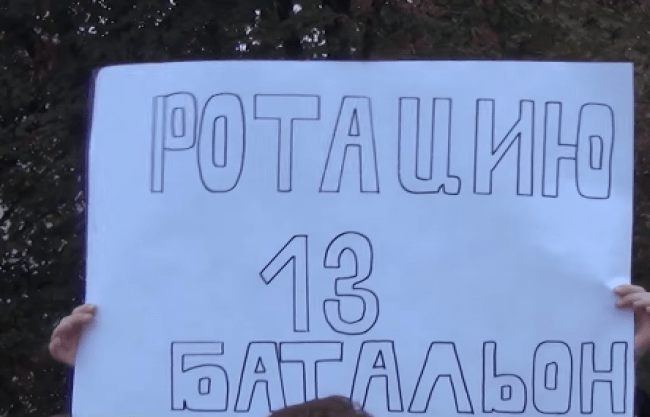 РОТАЦИЮ
13
БАТАЛЬОН